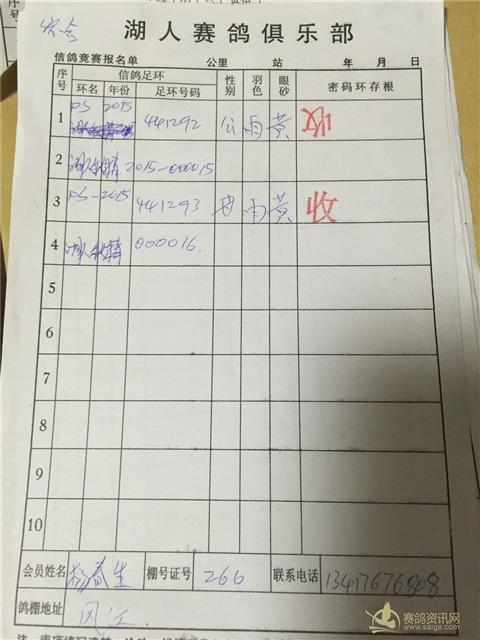 湖人赛鸽俱乐部
信鸽竞赛报名单 公里 站 年 月 日
序号 信鸽足环 性别 羽色 眼砂 密码环存根
环名 年份 足环号码
1 PS 2015 441292 公 雨 黄 收
2 2015-000015
3 PS-2015 441293 雨 黄 收
4 000016
5
6
7
8
9
10
会员姓名 杨春生 棚号证号 266 联系电话
鸽棚地址
赛鸽资讯网
www.saige.com